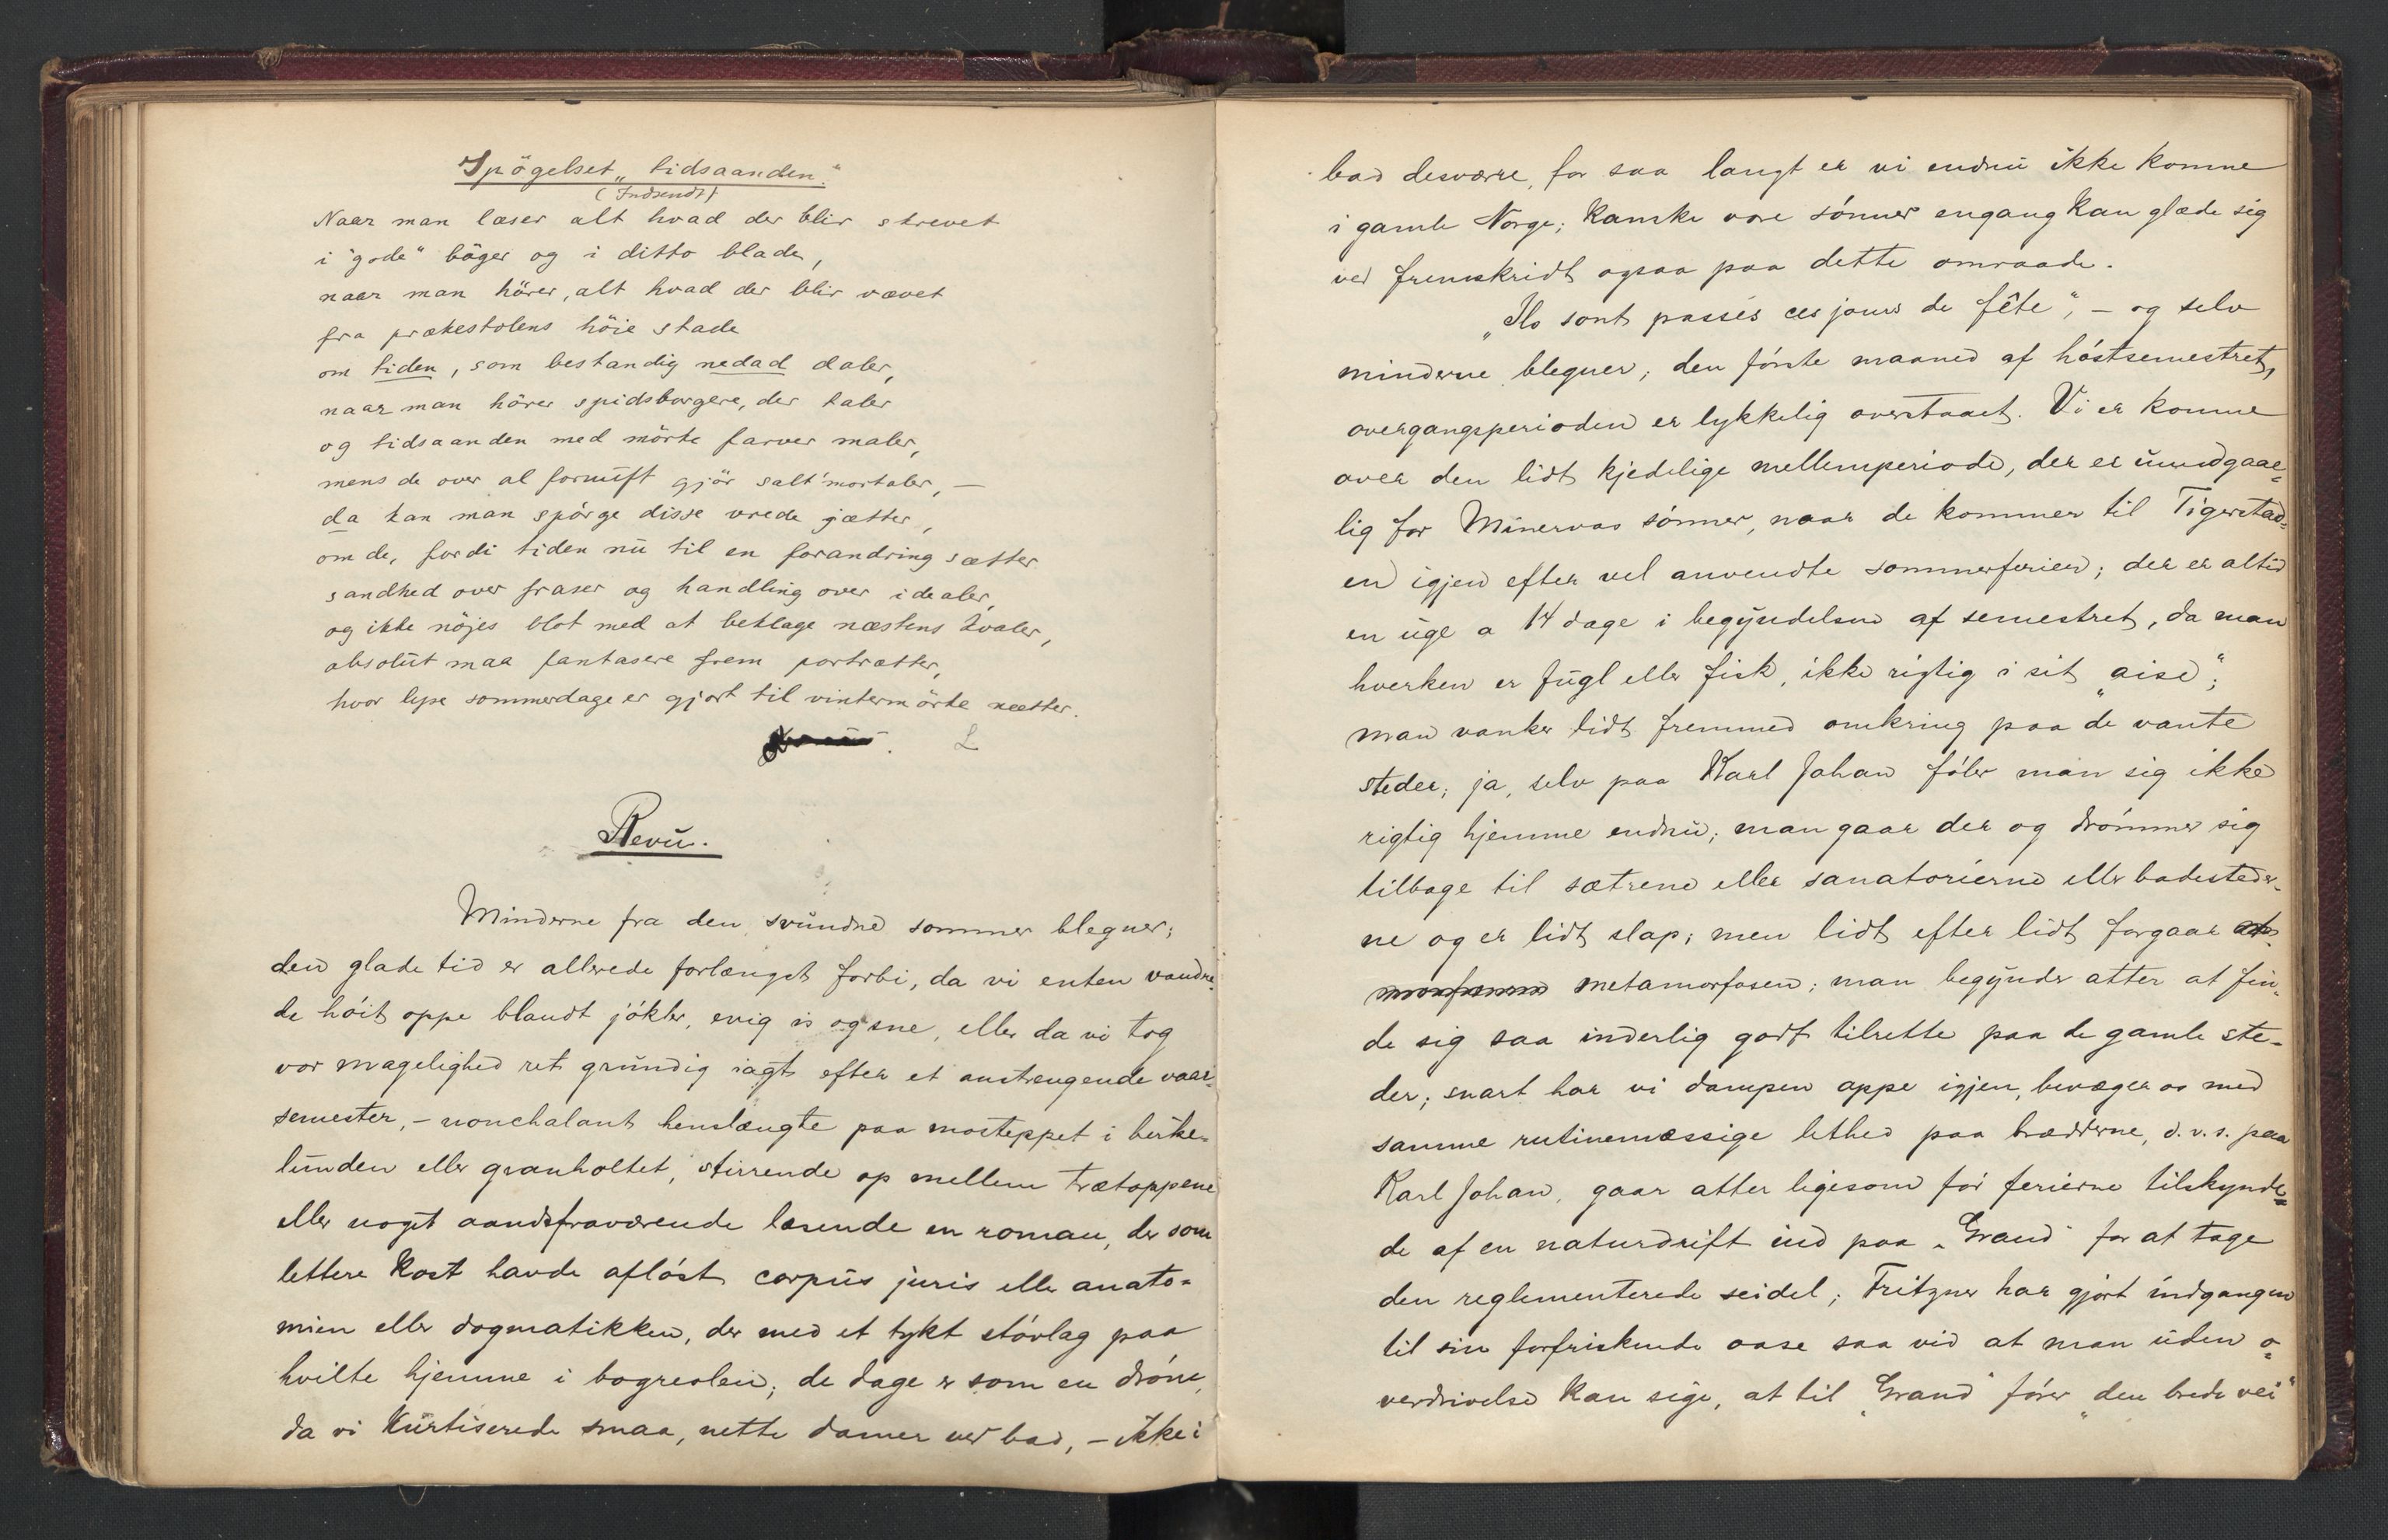 Spögelset „tidsaanden."
(Indsendt)
Naar man læser alt hvad der blir skrevet
i "gode" böger og i ditto blade,
naar man hörer, alt hvad der blir vævet
fra prækestolens höie stade
om tiden, som bestandig nedad daler,
naar man hörer spidsborgere, der taler
og tidsaanden med mörke farver maler,
mens de over al fornuft gjör salt'mortaler, —
da kan man spörge disse vrede jætter,
om de, fordi tiden nu til en forandring sætter
sandhed over fraser og handling over idealer,
og ikke nöjes blot med at beklage næstens kvaler,
absolut maa fantasere frem portrætter,
hvor lyse sommerdage er gjort til vintermörke nætter.
L
Revü.
Minderne fra den svundne sommer blegner;
den glade tid er allerede forlængst forbi, da vi enten vandre-
de höit oppe blandt jökler, evig is og sne, eller da vi tog
vor magelighed ret grundig iagt efter et anstrengende vaar-
semester, – nonchalant henslængte paa mosteppet i birke-
lunden eller granholtet, stirrende op mellem trætoppene
eller noget aandsfraværende læsende en roman, der som
lettere kost havde aflöst corpus juris eller anato-
mien eller dogmatikken, der med et tykt stövlag paa
hvilte hjemme i bogreolen; de dage er som en dröm,
da vi kurtiserede smaa, nette damer ved bad, – ikke i
bad desværre, for saa langt er vi endnu ikke komne
i gamle Norge; kanske vore sönner engang kan glæde sig
ved fremskridt ogsaa paa dette omraade.
„Ils sont passés ces jours de fête", – og selv
minderne blegner; den förste maaned af höstsemestret,
overgangsperioden er lykkelig overstaaet. Vi er komne
over den lidt kjedelige mellemperiode, der er uundgaae-
lig for Minervas sönner, naar de kommer til Tigerstad-
en igjen efter vel anvendte sommerferier; der er altid
en uge a 14 dage i begyndelsen af semestret, da man
hverken er fugl eller fisk, ikke rigtig i sit „aise";
man vanker lidt fremmed omkring paa de vante
steder; ja, selv paa Karl Johan föler man sig ikke
rigtig hjemme endnu; man gaar der og drömmer sig
tilbage til sætrene eller sanatorierne eller badesteder-
ne og er lidt slap; men lidt efter lidt forgaar
metamorfosen; man begynder atter at fin-
de sig saa inderlig godt tilrette paa de gamle ste-
der; snart har vi dampen oppe igjen, bevæger os med
samme rutinemæssige lethed paa brædderne, d.v.s. paa
Karl Johan, gaar atter ligesom för ferierne tilskynde-
de af en naturdrift ind paa „Grand" for at tage
den reglementerede seidel; Fritzner har gjort indgangen
til sin forfriskende oase saa vid at man uden o-
verdrivelse kan sige, at til „Grand" förer „den brede vei"